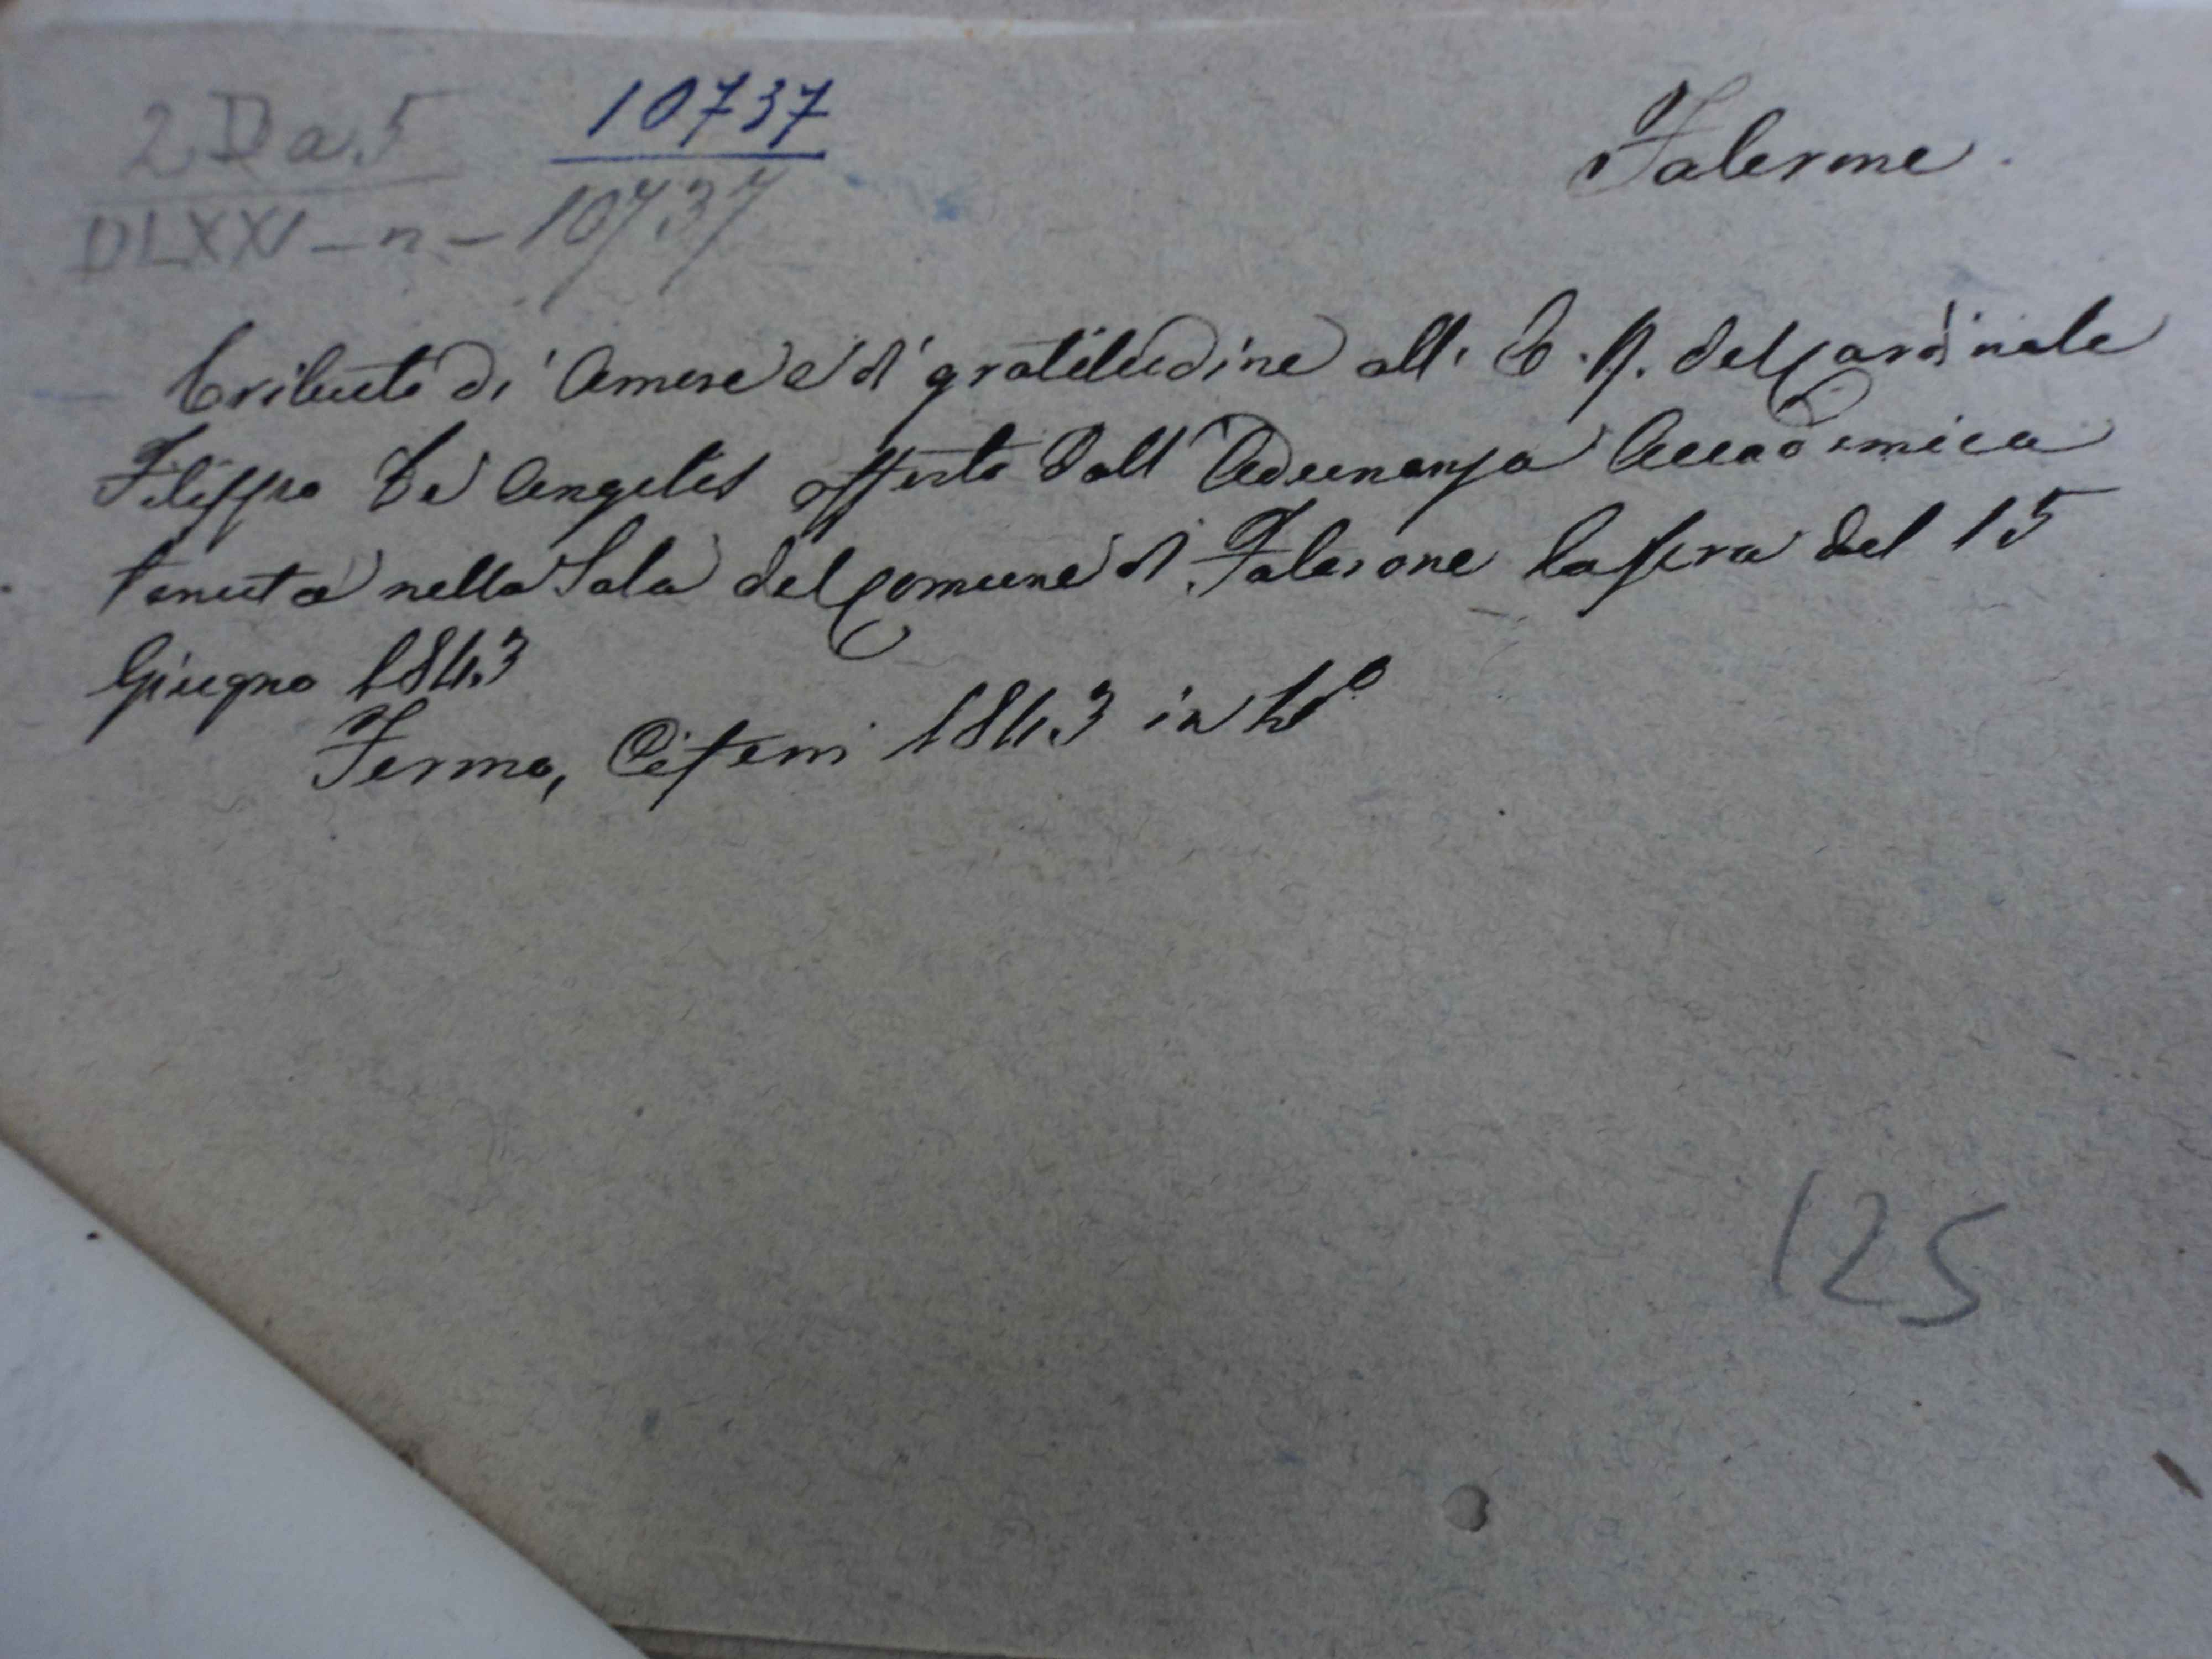 2 D a.5
10737
Falerone.
DLXXI - n - 10737
Tributo di Amore e di gratitudine all' E. R. del Cardinale
Filippo De Angelis offerto dall' Adunanza Accademica
tenuta nella Sala del Comune di Falerone la sera del 15
Giugno 1843
Fermo, 1843 in 4º
125